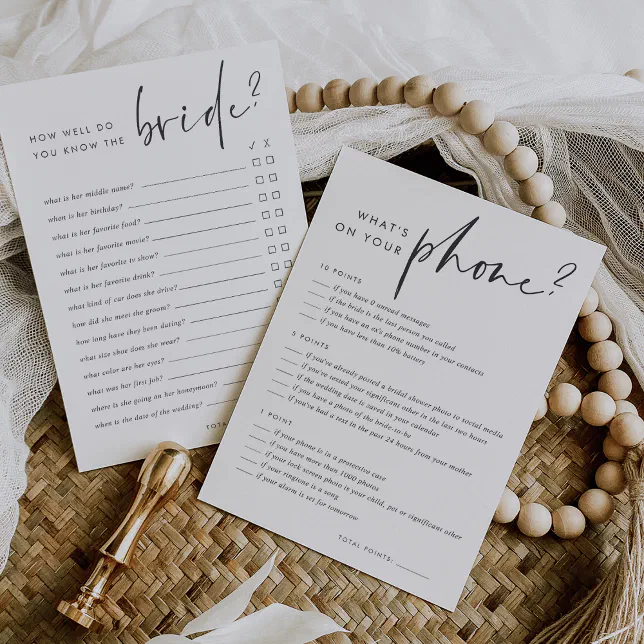 HOW WELL DO
YOU KNOW THE bride?
✓ X
what is her middle name?
when is her birthday?
what is her favorite food?
what is her favorite movie?
what is her favorite tv show?
what is her favorite drink?
what kind of car does she drive?
how did she meet the groom?
how long have they been dating?
what size shoe does she wear?
what color are her eyes?
what was her first job?
where is she going on her honeymoon?
when is the date of the wedding?
TOTA
WHAT'S
ON YOUR phone?
10 POINTS
if you have 0 unread messages
if the bride is the last person you called
if you have an ex's phone number in your contacts
if you have less than 10% battery
5 POINTS
if you've already posted a bridal shower photo to social media
if you've texted your significant other in the last two hours
if the wedding date is saved in your calendar
if you have a photo of the bride-to-be
if you've had a text in the past 24 hours from your mother
1 POINT
if your phone is in a protective case
if you have more than 1000 photos
if your lock screen photo is your child, pet or significant other
if your ringtone is a song
if your alarm is set for tomorrow
TOTAL POINTS: